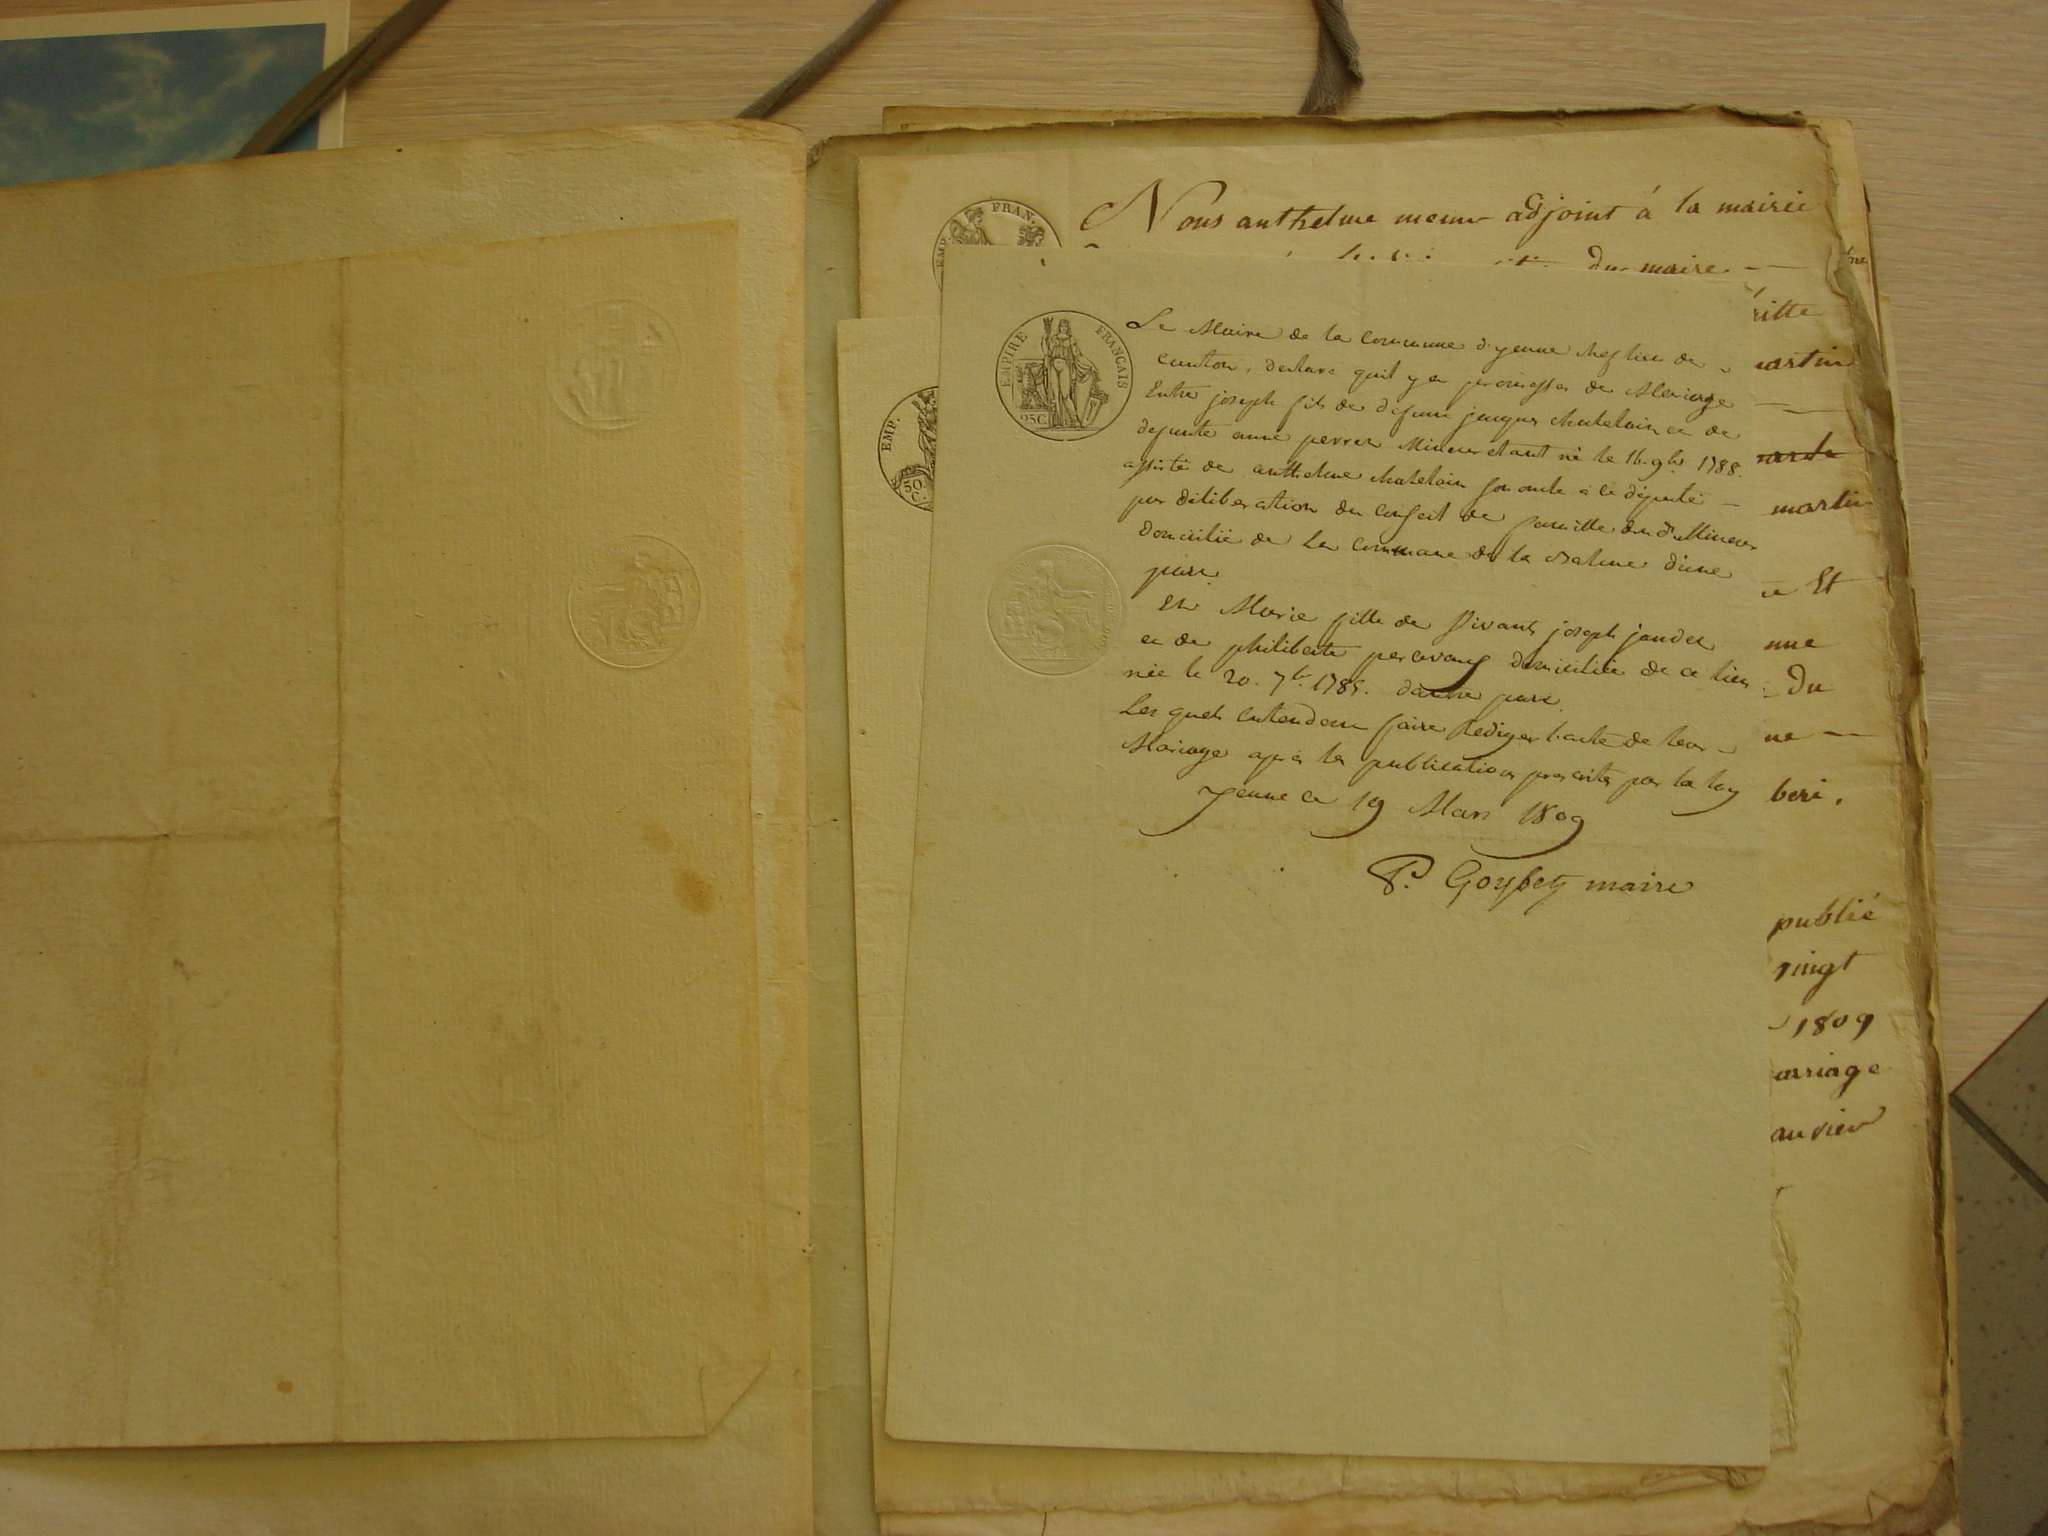 FRAN.
EMP.
Nous anthelme meunr adjoint á la mairie
Du maire. —
ritte
EMPIRE FRANÇAIS
25C.
EMP.
50.
C.
Le Maire de la Commune d'yenne chef lieu de
canton, declare quil y a promesses de Mariage
Entre joseph fils de defunt jacques chatelain et de
defunte anne perret Mineur etant né le 16. 9bre 1788.
assisté de anthelme chatelain son oncle à ce député —
par déliberation du conseil de famille dud. Mineur
domicilié de la commune de la Balme d'une
part.
Et Marie fille de vivants joseph jandet
et de philiberte percevaux domiciliée de ce lieu
née le 20. 7bre 1785. d'autre part.
Les quels entendent faire Rediger l'acte de leur —
Mariage après les publications prescrites par la loy
yenne ce 19 Mars 1809
P. Goybet maire
martin
Et
nne
Du
ne —
beri.
publié
vingt
1809
arriage
anvier